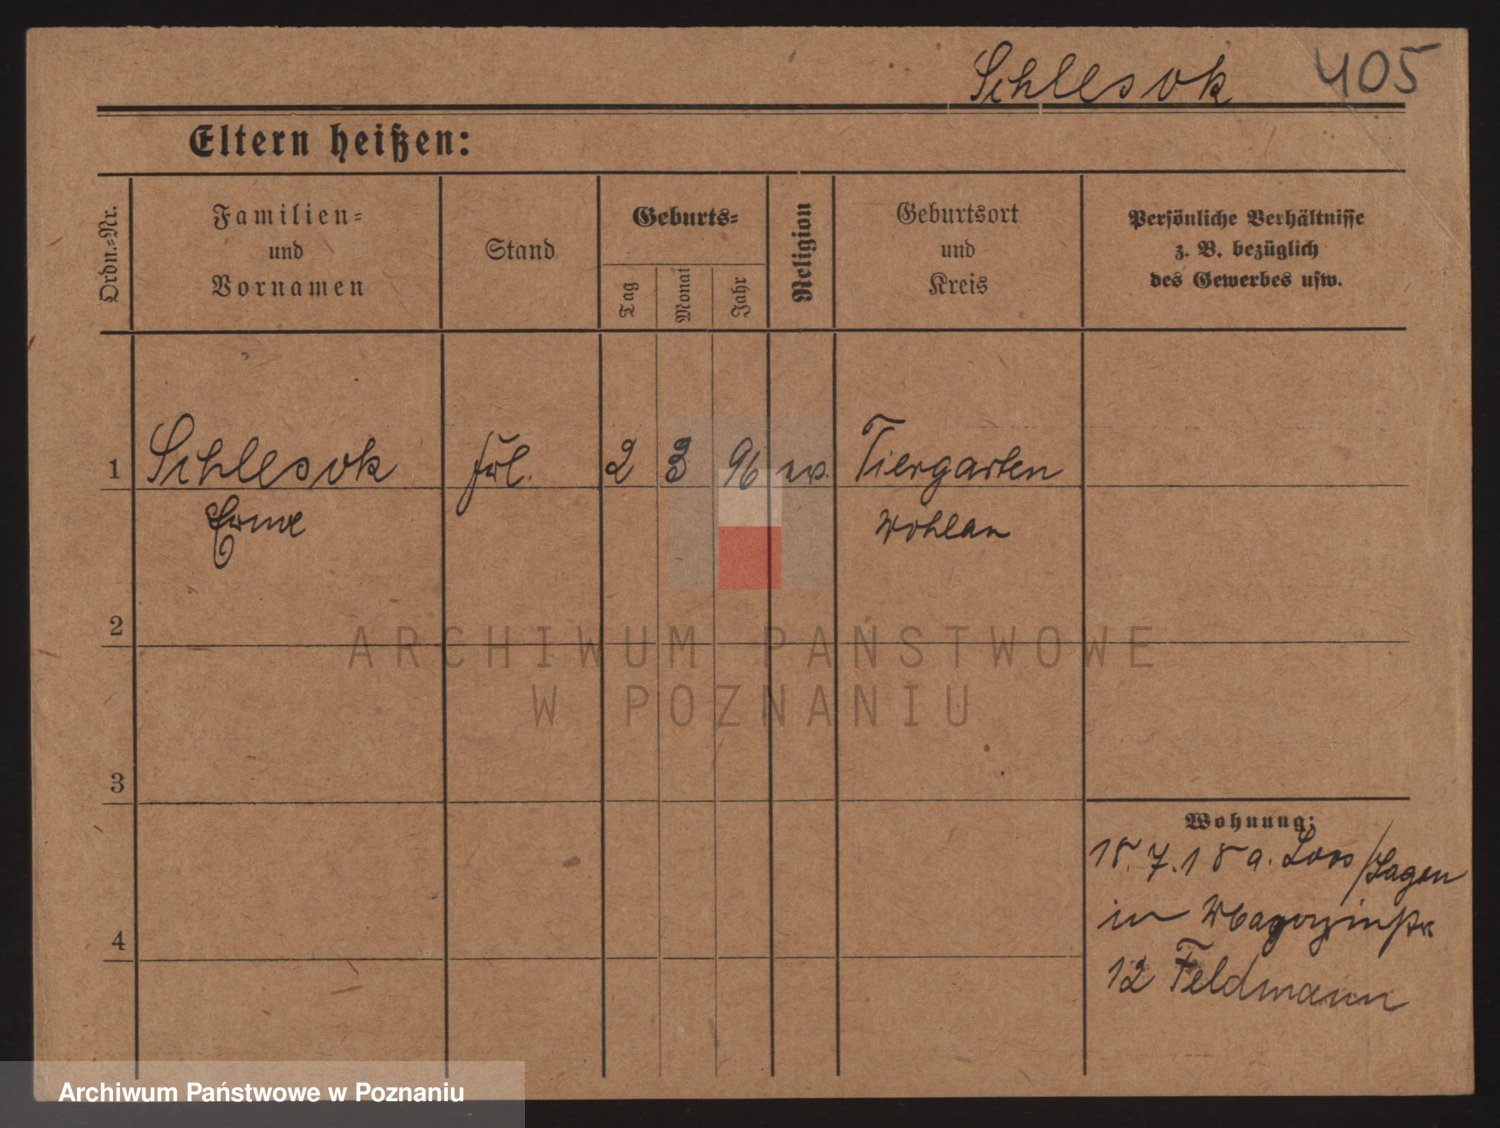 Schlesok 405
Eltern heißen:
Ordn.-Nr.
Familien-
und
Vornamen
Stand
Geburts-
Tag
Monat
Jahr
Religion
Geburtsort
und
Kreis
Persönliche Verhältnisse
z. B. bezüglich
des Gewerbes usw.
1 Schlesok frl. 2 3 96 ev. Tiergarten
Erna Wohlau
2
3
4
Wohnung:
18.7.18 a. Loos/Sagan
in Magazinstr
12 Feldmann
ARCHIWUM PAŃSTWOWE
W POZNANIU
Archiwum Państwowe w Poznaniu